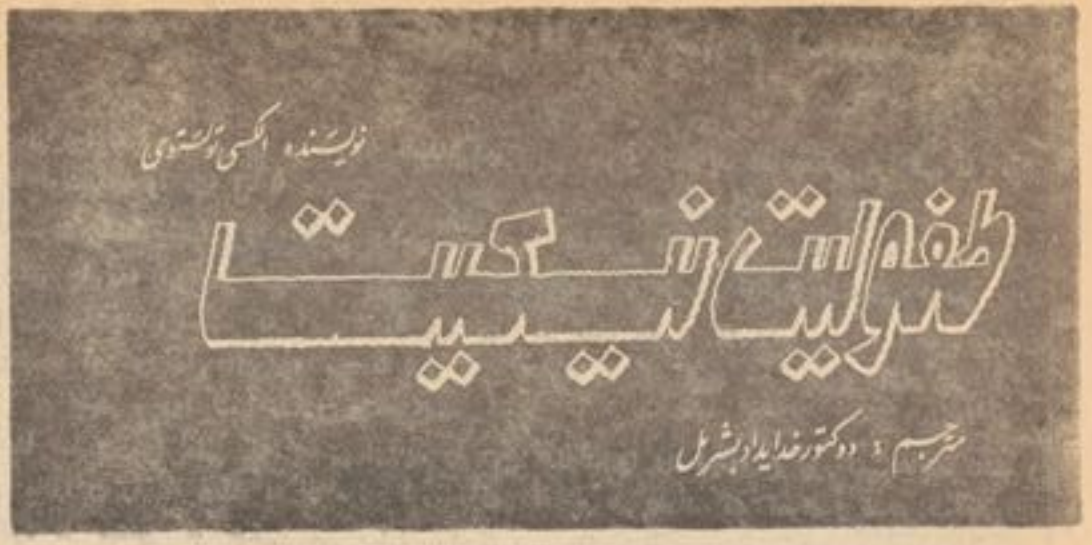 نویسنده الکسی تولستوی
طفولیت نیکیتا
مترجم : دوکتور خدایداد بشرمل